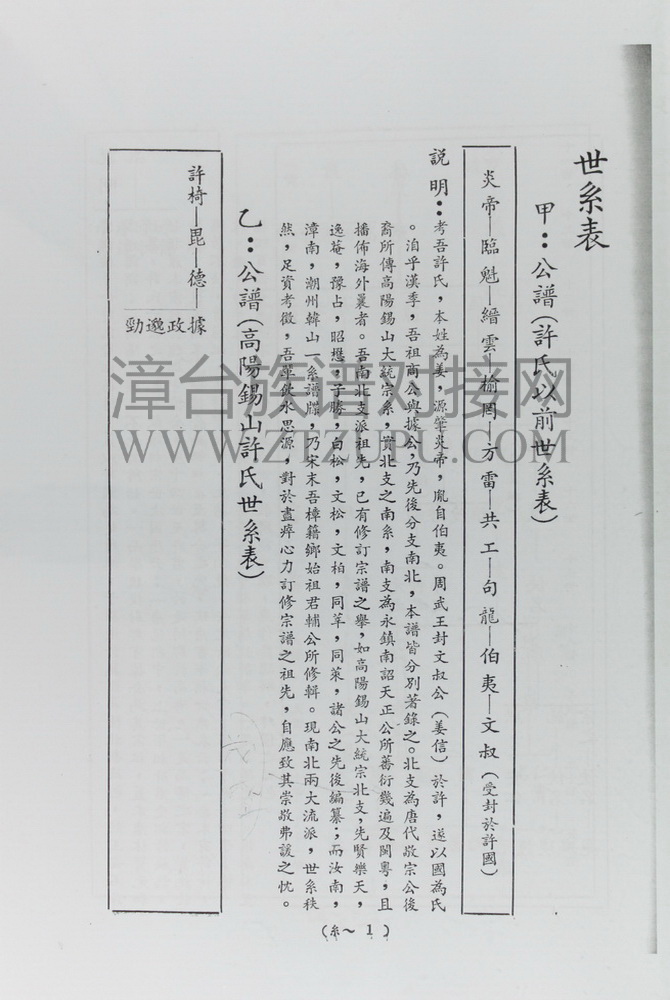 世系表
甲：公譜(許氏以前世系表)
炎帝—臨魁—縉雲—榆罔—方雷—共工—句龍—伯夷—文叔(受封於許國)
說明：考吾許氏，本姓為姜，源肇炎帝，胤自伯夷。周武王封文叔公(姜信)於許，遂以國為氏
。洎乎漢季，吾祖商公與據公，乃先後分支南北，本譜皆分別著錄之。北支為唐代敬宗公後
裔所傳高陽錫山大統宗系，實北支之南系，南支為永鎮南詔天正公所蕃衍幾遍及閩粵，且
播佈海外曩者。吾南北支派祖先，已有修訂宗譜之舉，如高陽錫山大統宗北支，先賢樂天，
逸菴，豫占，昭懋，子勝，白松，文松，文柏，同莘，同萊，諸公之先後編纂；而汝南，
漳南，潮州韓山一系譜牒，乃宋末吾樟籍鄉始祖君輔公所修輯。現南北兩大流派，世系秩
然，足資考徵，吾輩飲水思源，對於盡瘁心力訂修宗譜之祖先，自應致其崇敬弗諼之忱。
乙：公譜(高陽錫山許氏世系表)
許椅—毘—德—
據政邈勁
(糸～1)
漳台族谱对接网
WWW.ZTZUPU.COM